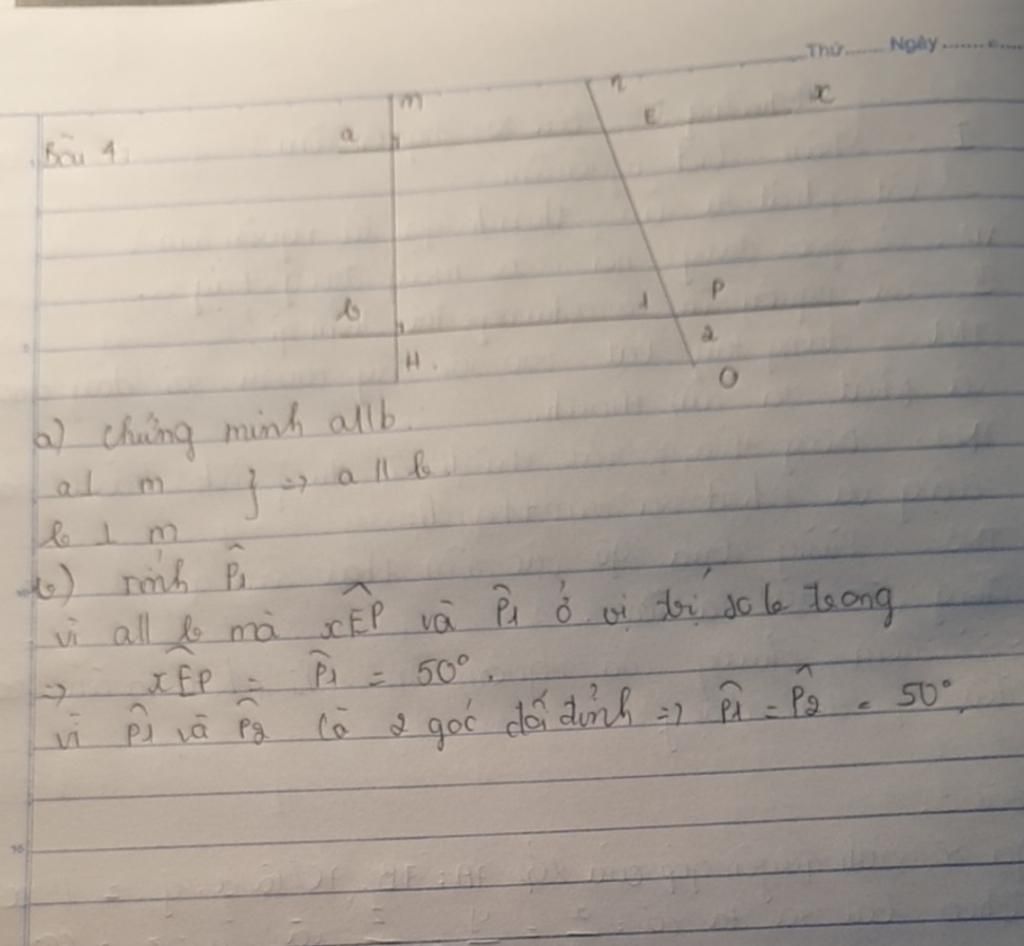 Thứ....... Ngày............
m n
Bài 4. a E x
b 1 P
H. 2
O
a) Chứng minh a//b.
a⊥ m } => a // b.
b ⊥ m
b) tính P̂1
vì a// b mà xÊP và P̂1 ở vị trí so le trong
=> xÊP = P̂1 = 50°.
vì P̂1 và P̂2 là 2 góc đối đỉnh => P̂1 = P̂2 = 50°.